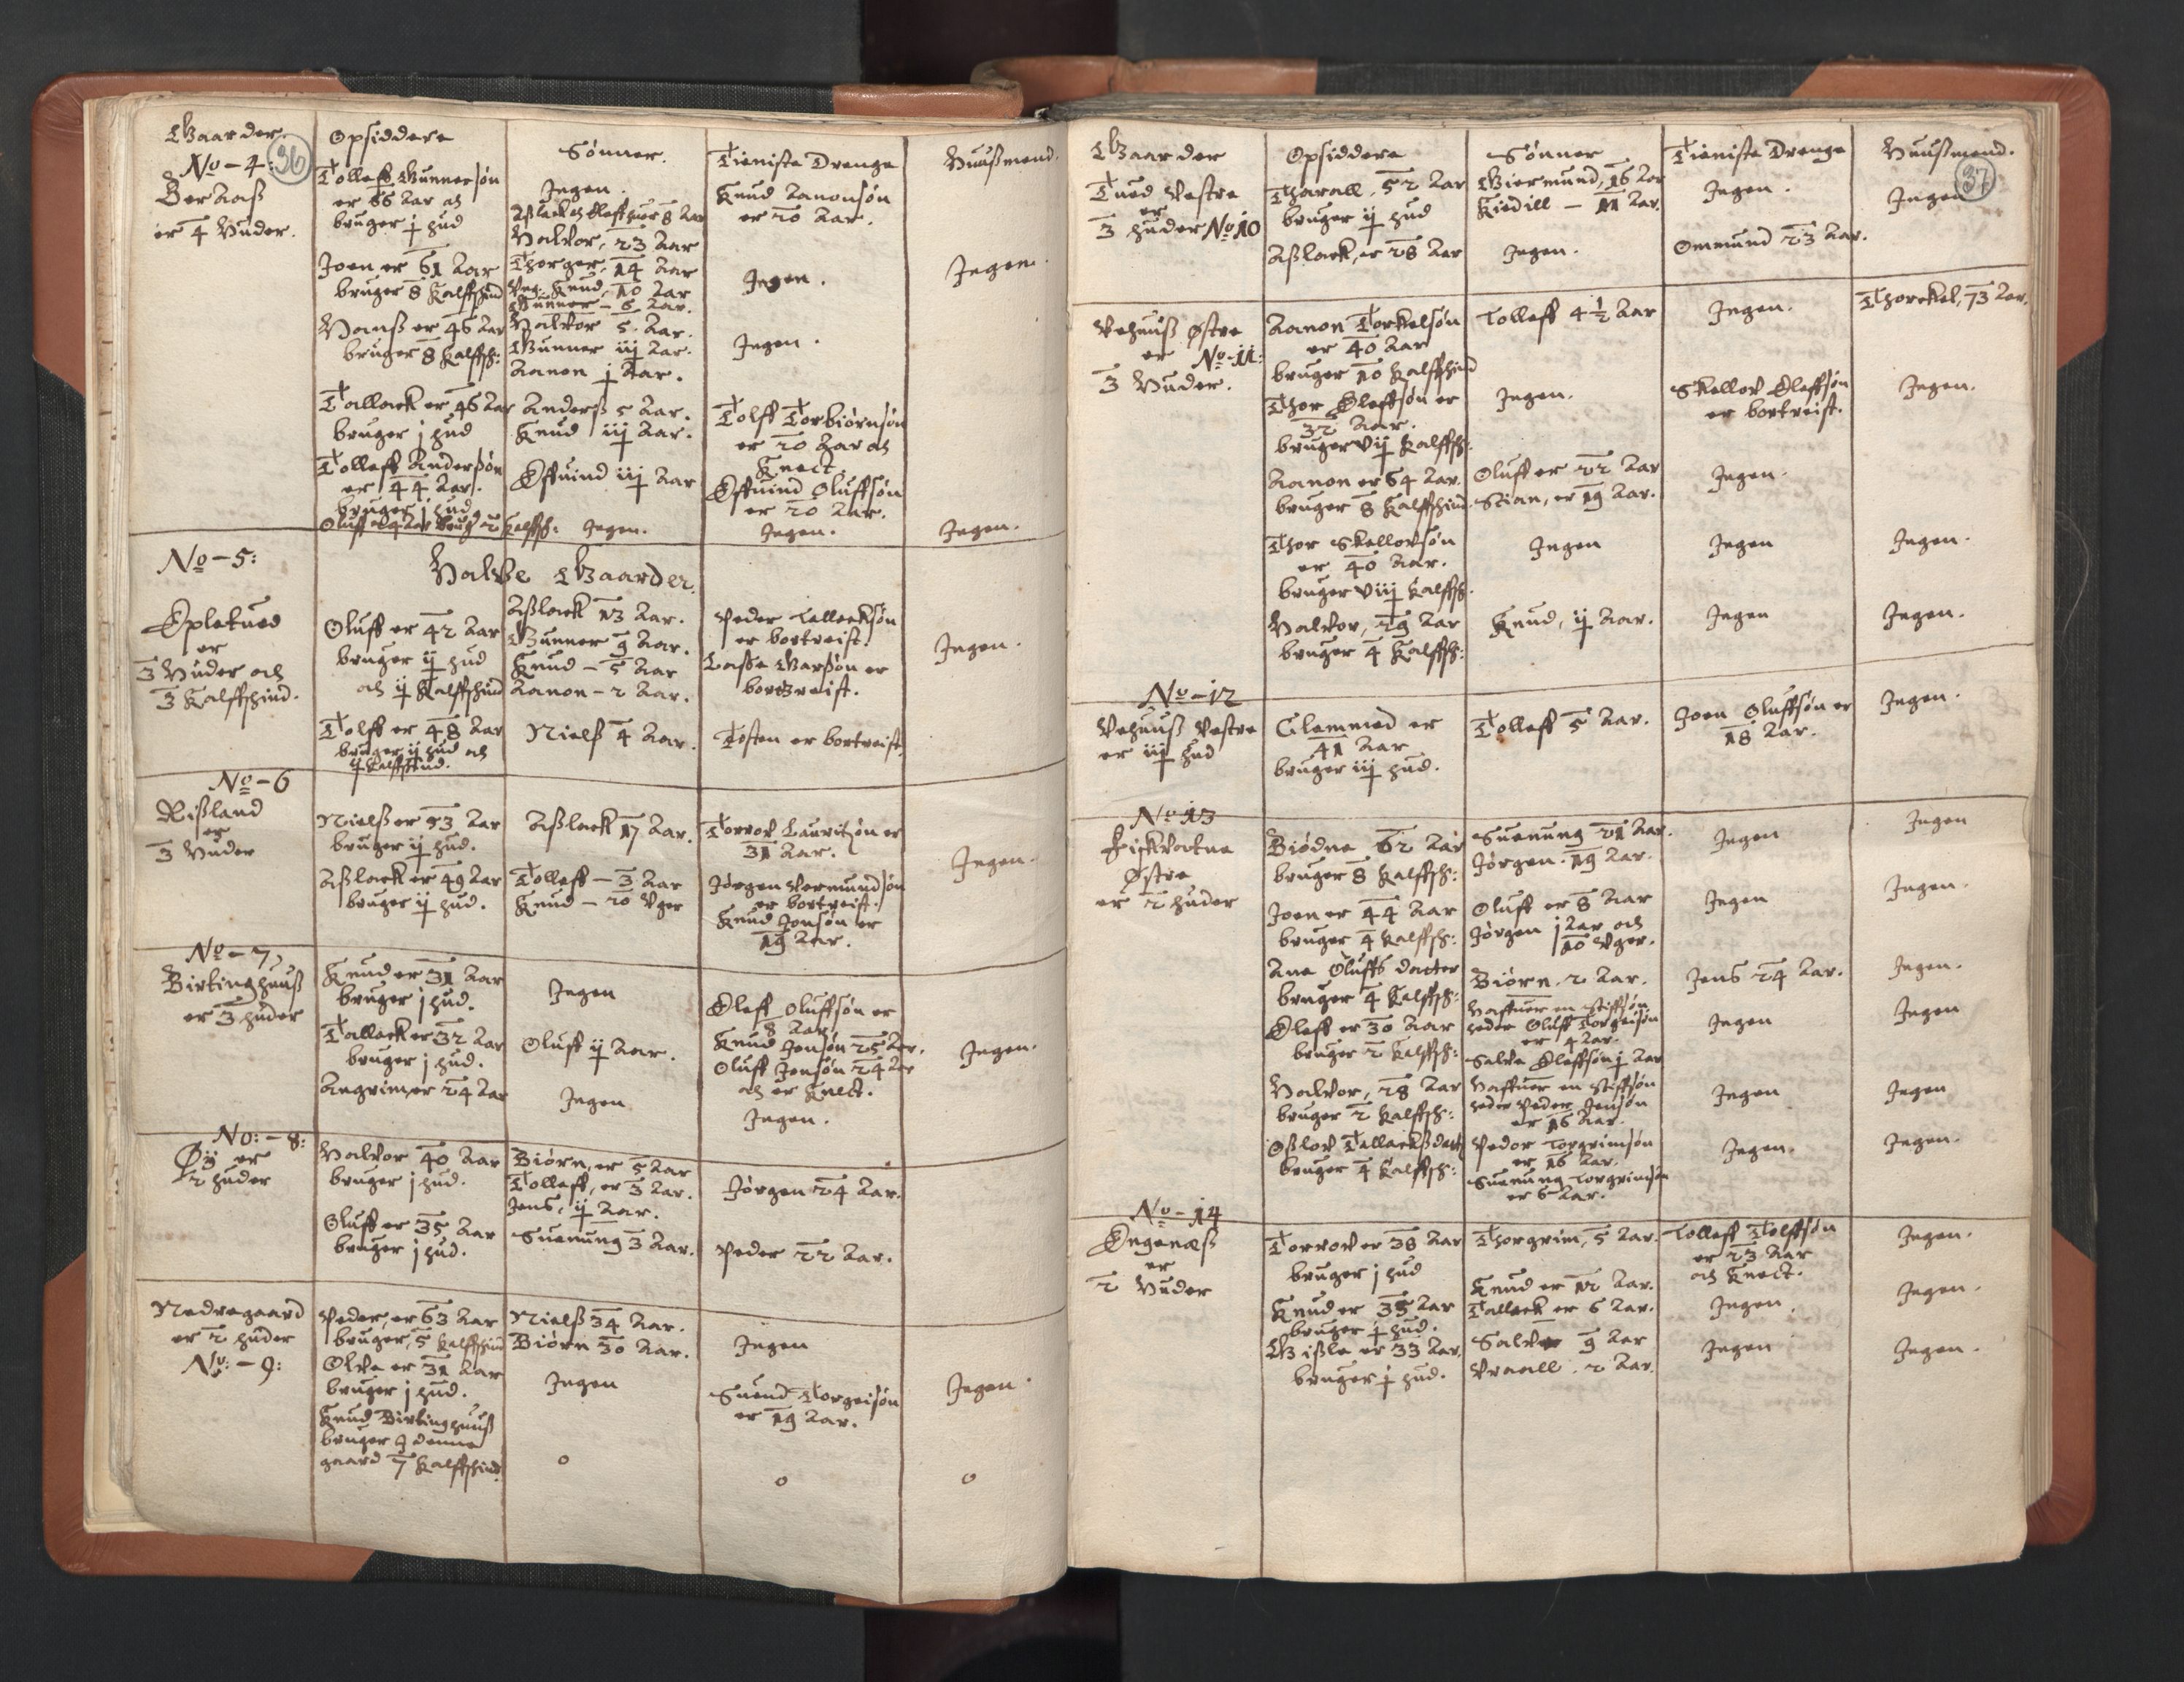 Gaarder
Opsiddere
Sønner.
Tieniste Drenge
Huußmend.
36
No - 4:
Beraaß
er 4 Huder.
Tolleff Gunnersøn
er 66 Aar och
bruger j hud
Ingen.
Aßlack och Oleff huer 8 Aar
Knud Aanonsøn
er 20 Aar.
Joen er 61 Aar
bruger 8 Kalffskind
Halvor, 23 Aar
Thorger, 14 Aar
Knud, 10 Aar
Gunner - 6 Aar.
Ingen.
Ingen.
Hanß er 46 Aar
bruger 8 Kalffsk:
Halvor 5 Aar.
Gunner iij Aar.
Aanon j Aar.
Ingen.
Tallack er 46 Aar
bruger j hud
Anderß 5 Aar.
Knud iij Aar.
Tolff Torbiørnsøn
er 20 Aar och
Knect.
Tolleff Anderßøn
er 44 Aar.
bruger j hud
Øffuind iij Aar
Øffuind Oluffsøn
er 20 Aar.
Kalffsk: Ingen.
Ingen.
Ingen.
No - 5:
Halve Gaarder.
Opletued
er
3 Huder och
3 Kalffskind.
Oluff er 42 Aar
bruger ij hud
och ij Kalffskind
Aßlack 13 Aar.
Gunner 9 Aar.
Knud - 5 Aar
Aanon - 2 Aar.
Peder Tallacksøn
er bortreist.
Laße Garsøn er
bortreist.
Ingen.
Tolff er 48 Aar
bruger ij hud och
ij Kalffskind.
Nielß 4 Aar.
Tosten er bortreist.
No - 6
Rißland
er
3 Huder
Nielß er 53 Aar
bruger ij hud.
Aßlack 17 Aar.
Torvor Lauritzøn er
31 Aar.
Ingen.
Aßlack er 49 Aar
bruger ij hud.
Tolleff - 3 Aar
Knud - 20 Vger
Jørgen Vermundsøn
er bortreist.
Knud Jonsøn er
19 Aar.
No - 7,
Birtinghuuß
er 3 huder
Knud er 31 Aar
bruger j hud.
Ingen
Oleff Oluffsøn er
8 Aar
Tallack er 32 Aar
bruger j hud.
Oluff ij Aar.
Knud Jensøn 25 Aar.
Oluff Jensøn 24 Aar
och er Knect.
Ingen.
Angrim er 24 Aar
Ingen
Ingen.
No: - 8:
Øy er
2 huder
Halvor 40 Aar
bruger j hud.
Biørn, er 5 Aar
Tolleff, er 3 Aar.
Jens, ij Aar.
Jørgen 24 Aar.
Oluff er 35 Aar
bruger j hud.
Suenung 3 Aar.
Peder 22 Aar.
Nedregaard
er 2 huder
No: - 9:
Peder, er 63 Aar
bruger, 5 Kalffskind
Nielß 34 Aar.
Biørn 30 Aar.
Ingen
Olve er 31 Aar
bruger j hud.
Ingen
Suend Torgeisøn
er 19 Aar.
Ingen.
Knud Birtinghuuß
bruger i denne
gaard 7 Kalffskind
o
o
o
Gaarder
Opsiddere
Sønner
Tieniste Drenge
Huußmend.
37
Tued Vestre
er
3 huder No 10
Tharall, 52 Aar
bruger ij hud
Giermund, 16 Aar
Kiedill - 11 Aar.
Ingen.
Ingen
Aßlack, er 28 Aar
Ingen.
Ommund 23 Aar.
Vehuuß Østre
er No - 11:
3 Huder.
Aanon Torkelsøn
er 40 Aar
bruger 10 Kalffskind
Tolleff 4 1/2 Aar
Ingen.
Thorckel, 73 Aar.
Thor Oleffsøn er
32 Aar.
bruger vij Kalffsk:
Ingen.
Skellov Oleffsøn
er bortreist.
Ingen.
Aanon er 64 Aar.
bruger 8 Kalffskind.
Oluff er 22 Aar
Stian, er 19 Aar.
Ingen.
Thor Skellovsøn
er 40 Aar.
bruger viij Kalffsk.
Ingen
Ingen
Ingen.
Halvor, 29 Aar
bruger 4 Kalffsk:
Knud, ij Aar.
Ingen
Ingen.
No - 12
Vehuuß Vestre
er iij hud
Clemmed er
41 Aar
bruger iij hud.
Tolleff 5 Aar.
Joen Oluffsøn er
18 Aar.
Ingen.
No 13
Fiskvatne
Østre
er 2 huder
Biødne 62 Aar
bruger 8 Kalffsk:
Suenung 21 Aar.
Jørgen. 19 Aar.
Ingen
Ingen
Joen er 44 Aar
bruger 4 Kalffsk:
Oluff er 8 Aar
Jørgen j Aar och
10 Vger.
Ingen
Ingen.
Ane Oluffs datter
bruger 4 Kalffsk:
Biørn. 2 Aar.
Jens 24 Aar.
Ingen.
Oleff er 30 Aar
bruger 2 Kalffsk:
Haffuer en Stiffsøn
heder Oluff Torgeisøn
er 4 Aar.
Salve Oleffsøn j Aar
Ingen
Ingen
Halvor, 28 Aar
bruger 2 Kalffsk:
Haffuer en Stiffsøn
heder Peder Jensøn
er 16 Aar.
Ingen
Ingen
Oßlov Tallackßdatt
bruger 4 Kalffsk:
Peder Torgrimsøn
er 16 Aar.
Suenung Torgrimsøn
er 6 Aar.
Ingen.
Ingen.
No - 14
Engenæß
er
2 Huder
Torvor er 38 Aar
bruger j hud
Thorgrim, 5 Aar.
Tolleff Tolffsøn
er 23 Aar
och Knect.
Ingen.
Knud er 35 Aar
bruger j hud.
Knud er 12 Aar.
Tallack er 6 Aar.
Ingen.
Ingen.
Gißle er 33 Aar.
bruger j hud.
Salve 9 Aar
Vraall. 2 Aar.
Ingen
Ingen.